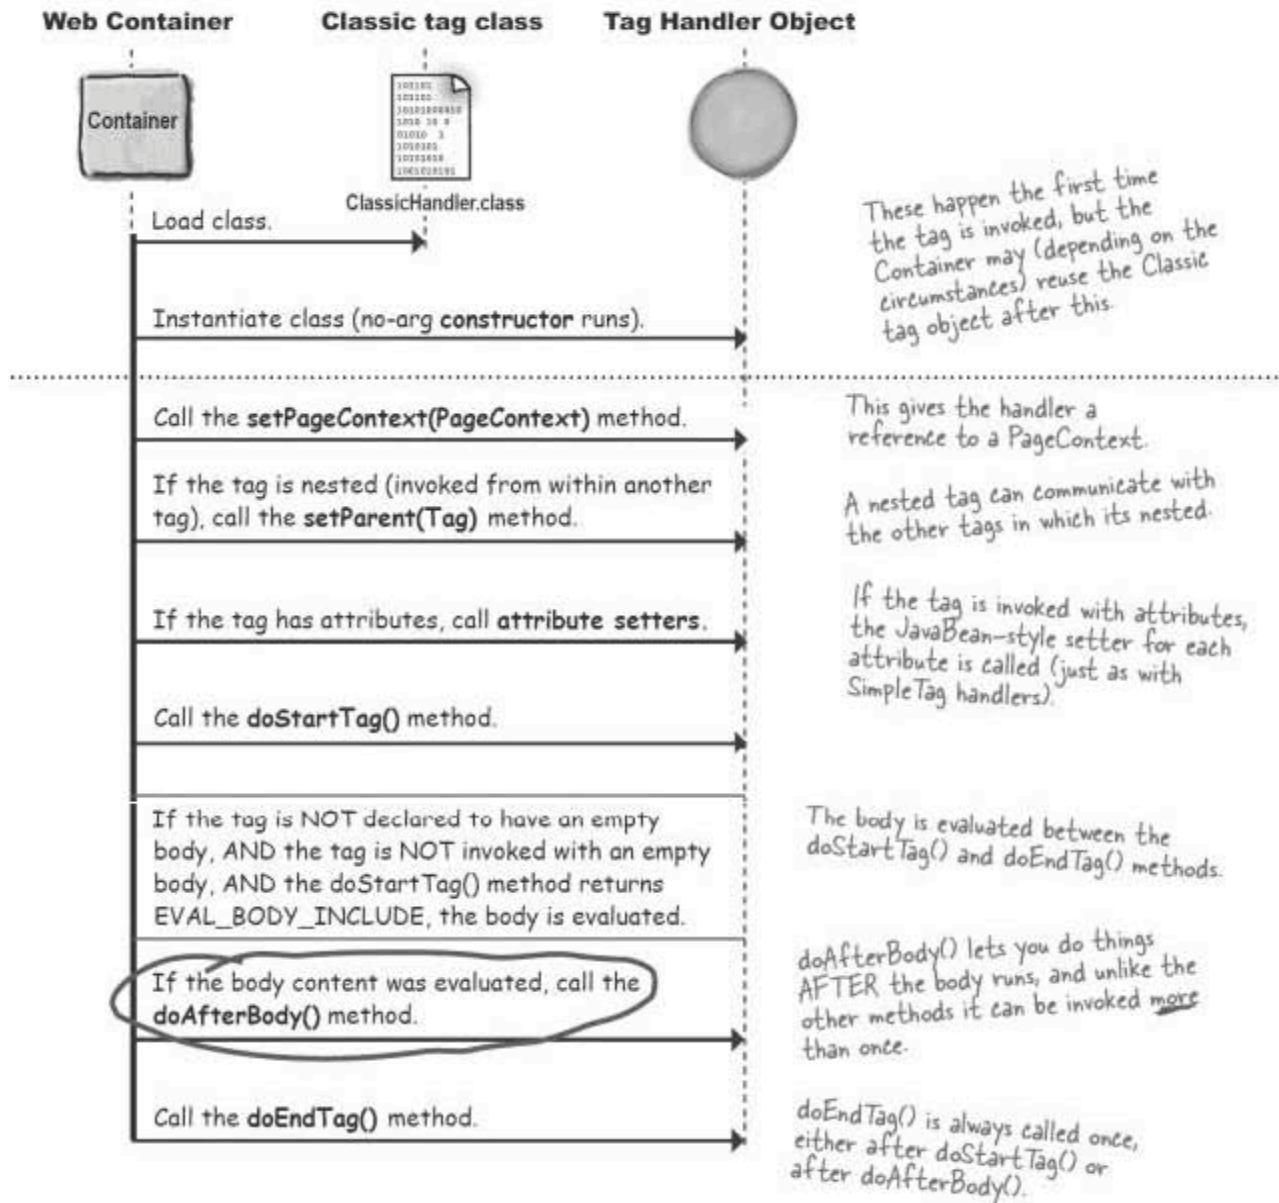 Web Container
Classic tag class
Tag Handler Object
Container
101101
101101
10101000010
1010 10 0
01010 1
1010101
10101010
1001010101
ClassicHandler.class
Load class.
These happen the first time
the tag is invoked, but the
Container may (depending on the
circumstances) reuse the Classic
tag object after this.
Instantiate class (no-arg constructor runs).
Call the setPageContext(PageContext) method.
This gives the handler a
reference to a PageContext.
If the tag is nested (invoked from within another
tag), call the setParent(Tag) method.
A nested tag can communicate with
the other tags in which its nested.
If the tag has attributes, call attribute setters.
If the tag is invoked with attributes,
the JavaBean-style setter for each
attribute is called (just as with
SimpleTag handlers).
Call the doStartTag() method.
If the tag is NOT declared to have an empty
body, AND the tag is NOT invoked with an empty
body, AND the doStartTag() method returns
EVAL_BODY_INCLUDE, the body is evaluated.
The body is evaluated between the
doStartTag() and doEndTag() methods.
If the body content was evaluated, call the
doAfterBody() method.
doAfterBody() lets you do things
AFTER the body runs, and unlike the
other methods it can be invoked more
than once.
Call the doEndTag() method.
doEndTag() is always called once,
either after doStartTag() or
after doAfterBody().